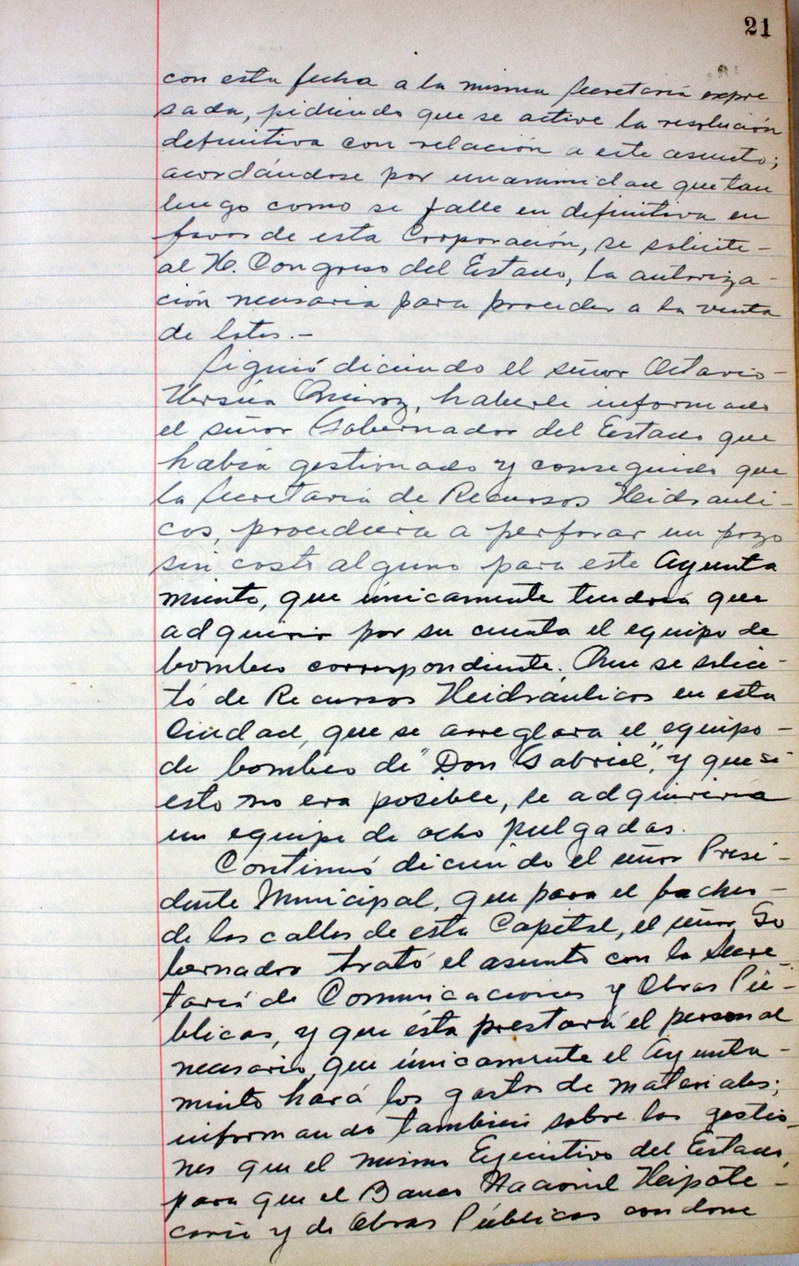 21
con esta fecha a la misma Secretaría expre
sada, pidiendo que se active la resolución
definitiva con relación a este asunto;
acordándose por unanimidad que tan
luego como se falle en definitiva en
favor de esta Corporación, se solicite-
al H. Congreso del Estado, la autoriza-
ción necesaria para proceder a la venta
de lotes.-
Siguió diciendo el señor Octavio-
Versúa Quiroz, haberle informado
el señor Gobernador del Estado que
había gestionado y conseguido que
la Secretaría de Recursos Heidrauli-
cos, procediera a perforar un pozo
sin costo alguno para este Ayunta
miento, que únicamente tendría que
adquirir por su cuenta el equipo de
bombeo correspondiente. Que se solici-
tó de Recursos Heidráulicos en esta
Ciudad, que se arreglara el equipo-
de bombeo de "Don Gabriel", y que si
esto no era posible, se adquiriría
un equipo de ocho pulgadas.
Continuó diciendo el señor Presi-
dente Municipal, que para el bacheo-
de las calles de esta Capital, el señor Go
bernador trató el asunto con la Secre-
taría de Comunicaciones y Obras Pú-
blicas, y que ésta prestará el personal
necesario, que únicamente el Ayunta-
miento hará los gastos de materiales;
informando también sobre las gestio-
nes que el mismo Ejecutivo del Estado
para que el Banco Nacional Heipote-
cario y de Obras Públicas condone